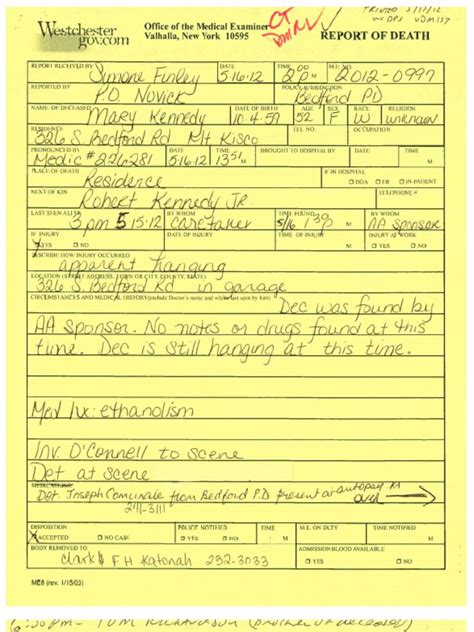 PRINTED 5/17/12
Westchester gov.com
Office of the Medical Examiner
Valhalla, New York 10595
REPORT OF DEATH
REPORT RECEIVED BY DATE TIME M.E. NO.
Simone Finley 5·16·12 2 00 PM 2012-0997
REPORTED BY POLICE JURISDICTION
P.O. Novick Bedford PD
NAME OF DECEASED DATE OF BIRTH AGE SEX RACE RELIGION
Mary Kennedy 10·4·59 52 F W unknown
RESIDENCE TEL NO. OCCUPATION
326 S. Bedford Rd Mt Kisco
PRONOUNCED BY DATE TIME BROUGHT TO HOSPITAL BY DATE TIME
Medic # 226281 5·16·12 13 51 M M
PLACE OF DEATH IF IN HOSPITAL
Residence DOA ER IN-PATIENT
NEXT OF KIN TELEPHONE #
Robert Kennedy Jr.
LAST SEEN ALIVE BY WHOM TIME FOUND BY WHOM
3 pm 5·15·12 caretaker 5/16 AA Sponsor
IF INJURY DATE OF INJURY TIME OF INJURY INJURY AT WORK
YES NO M YES NO
DESCRIBE HOW INJURY OCCURRED
apparent hanging
LOCATION (STREET ADDRESS, TOWN OR CITY, COUNTY, STATE)
326 S. Bedford Rd in garage
CIRCUMSTANCES AND MEDICAL HISTORY (include Doctor's name and when last seen by him)
Dec was found by
AA Sponsor. No notes or drugs found at this
time. Dec is still hanging at this time.
Med hx: ethanolism
Inv. O'Connell to scene
Det at scene
MEDICATIONS
Det. Joseph from Bedford P.D present at autopsy
241-3111 over
DISPOSITION POLICE NOTIFIED TIME M.E. ON DUTY TIME NOTIFIED
ACCEPTED NO CASE YES NO M M
BODY REMOVED TO ADMISSION BLOOD AVAILABLE
Clark's FH Katonah 232-3033 YES NO
ME8 (rev. 1/15/03)